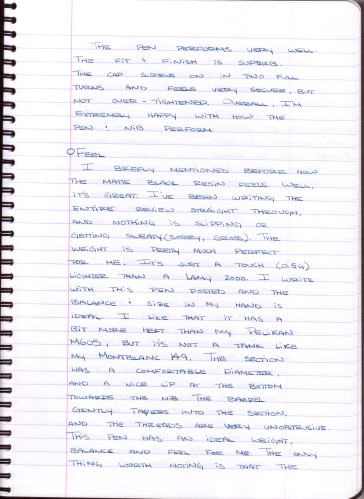 THE PEN PERFORMS VERY WELL.
THE FIT & FINISH IS SUPERB.
THE CAP SCREWS ON IN TWO FULL
TURNS AND FEELS VERY SECURE, BUT
NOT OVER-TIGHTENED. OVERALL, I'M
EXTREMELY HAPPY WITH HOW THE
PEN & NIB PERFORM.
FEEL
I BRIEFLY MENTIONED BEFORE HOW
THE MATTE BLACK RESIN FEELS. WELL,
IT'S GREAT. I'VE BEEN WRITING THE
ENTIRE REVIEW STRAIGHT THROUGH,
AND NOTHING IS SLIPPING OR
GETTING SWEATY (SORRY, GROSS). THE
WEIGHT IS PRETTY MUCH PERFECT
FOR ME. IT'S JUST A TOUCH (0.5G)
LIGHTER THAN A LAMY 2000. I WRITE
WITH THIS PEN POSTED AND THE
BALANCE & SIZE IN MY HAND IS
IDEAL. I LIKE THAT IT HAS A
BIT MORE HEFT THAN MY PELIKAN
M605, BUT IT'S NOT A TANK LIKE
MY MONTBLANC 149. THE SECTION
HAS A COMFORTABLE DIAMETER,
AND A NICE LIP AT THE BOTTOM
TOWARDS THE NIB. THE BARREL
GENTLY TAPERS INTO THE SECTION,
AND THE THREADS ARE VERY UNOBTRUSIVE.
THIS PEN HAS AN IDEAL WEIGHT,
BALANCE AND FEEL FOR ME. THE ONLY
THING WORTH NOTING IS THAT THE